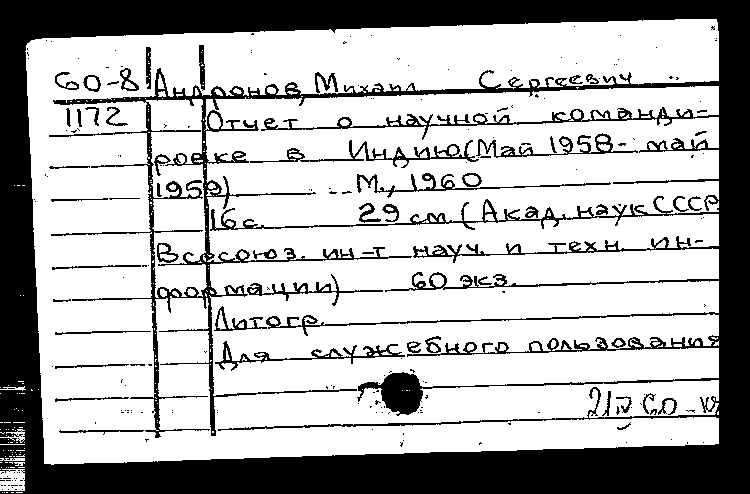 60-8 Андронов, Михаил Сергеевич
1172 Отчет о научной команди-
ровке в Индию (Май 1958 - май
1959) М., 1960
16 с. 29 см (Акад. наук СССР
Всесоюз. ин-т науч. и техн. ин-
формации) 60 экз.
Литогр.
Для служебного пользования
21 IV 60